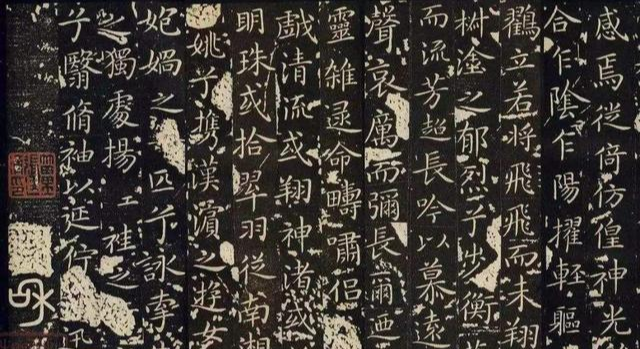 感焉徙倚仿偟神光
合乍陰乍陽擢輕軀
鸛立若將飛飛而未翔
椒塗之郁烈兮步衡
而流芳超長吟以慕遠
聲哀厲而彌長爾迺
靈雜遝命疇嘯侶
戲清流或翔神渚或
明珠或拾翠羽從南湘
姚兮携漢濱之遊女
媧之匹兮詠牽
之獨處揚袿之
兮翳脩袖以延佇